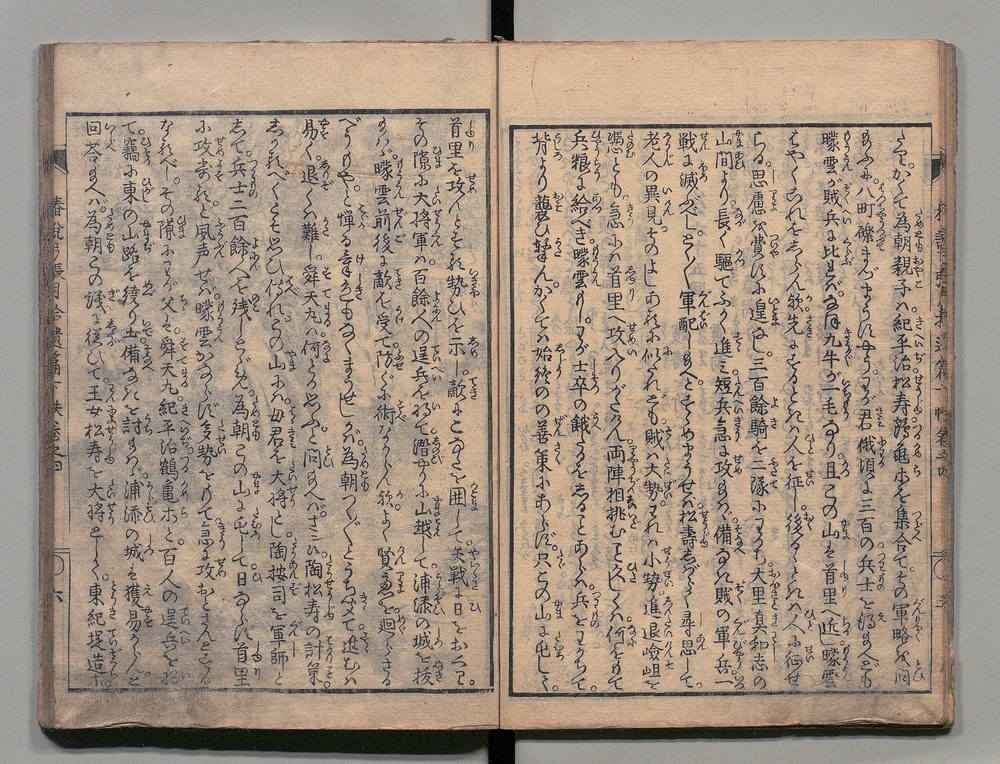 たまへ。かくて為朝親子ハ紀平治松寿鶴亀ホを集合てその軍略を問
めふに八町礫まづまうすやう。わが君俄頃に三百の兵士を得まへども
曚雲が賊兵に比ぶれバ九牛が一毛なり且この山を首里へ近し曚雲
はやくこれをしらん欤先にするときハ人を征し後るゝときハ人に征せ
らる思慮を費すに遑なし三百餘騎を二隊にわかち大里真和志の
山間より長く駆てふかく進ミ短兵急に攻めバ備なき賊の軍兵一
戦に滅ぶべしといふ軍配しかるべしとまうせバ松寿しばし尋思して
老人の異見そのよしあるに似たれども賊ハ大勢われハ小勢進退嶮岨を
憑とも急に首里へ攻入りがたからん両陣相挑むこと久しくハ何をもて
兵粮を給べき曚雲もしわが士卒の餓たるをしるときハ兵をわかちて
背より襲ひ撃ん。かくてハ始終の善策にあらず只この山に屯して
首里を攻んとする勢ひを示し敵にこゝを囲して矢戦に日をおくり
その隙に大将軍ハ百餘人の逞兵を将て潜やかに山越して浦添の城を抜
まハゞ曚雲前後に敵を受て防ぐに術なからん欤よく賢慮を廻らしまる
べうもやと憚る氣色もなくまうせしかバ為朝つく〲とうち聞て近むハ
易く退くハ難し舜天丸ハ何とかおもふと問まへバさン候陶松寿の計策
しかるべくこそ思ひ侍れこの山にハ母君を大将とし陶按司を軍師と
して兵士二百餘人を残しとゞめ為朝この山に屯して日ならず首里
に攻めると風声せバ曚雲かならず多勢をもて急に攻おとさんとする
なるべし。その隙にわが父と舜天丸紀平治鶴亀ホと百人の逞兵を将
て竊に東の山路を績り出備なきを討まハゞ浦添の城を獲易からんと
回答まへバ為朝この議に従ひて王女松寿を大将として東紀堤造ホ
六